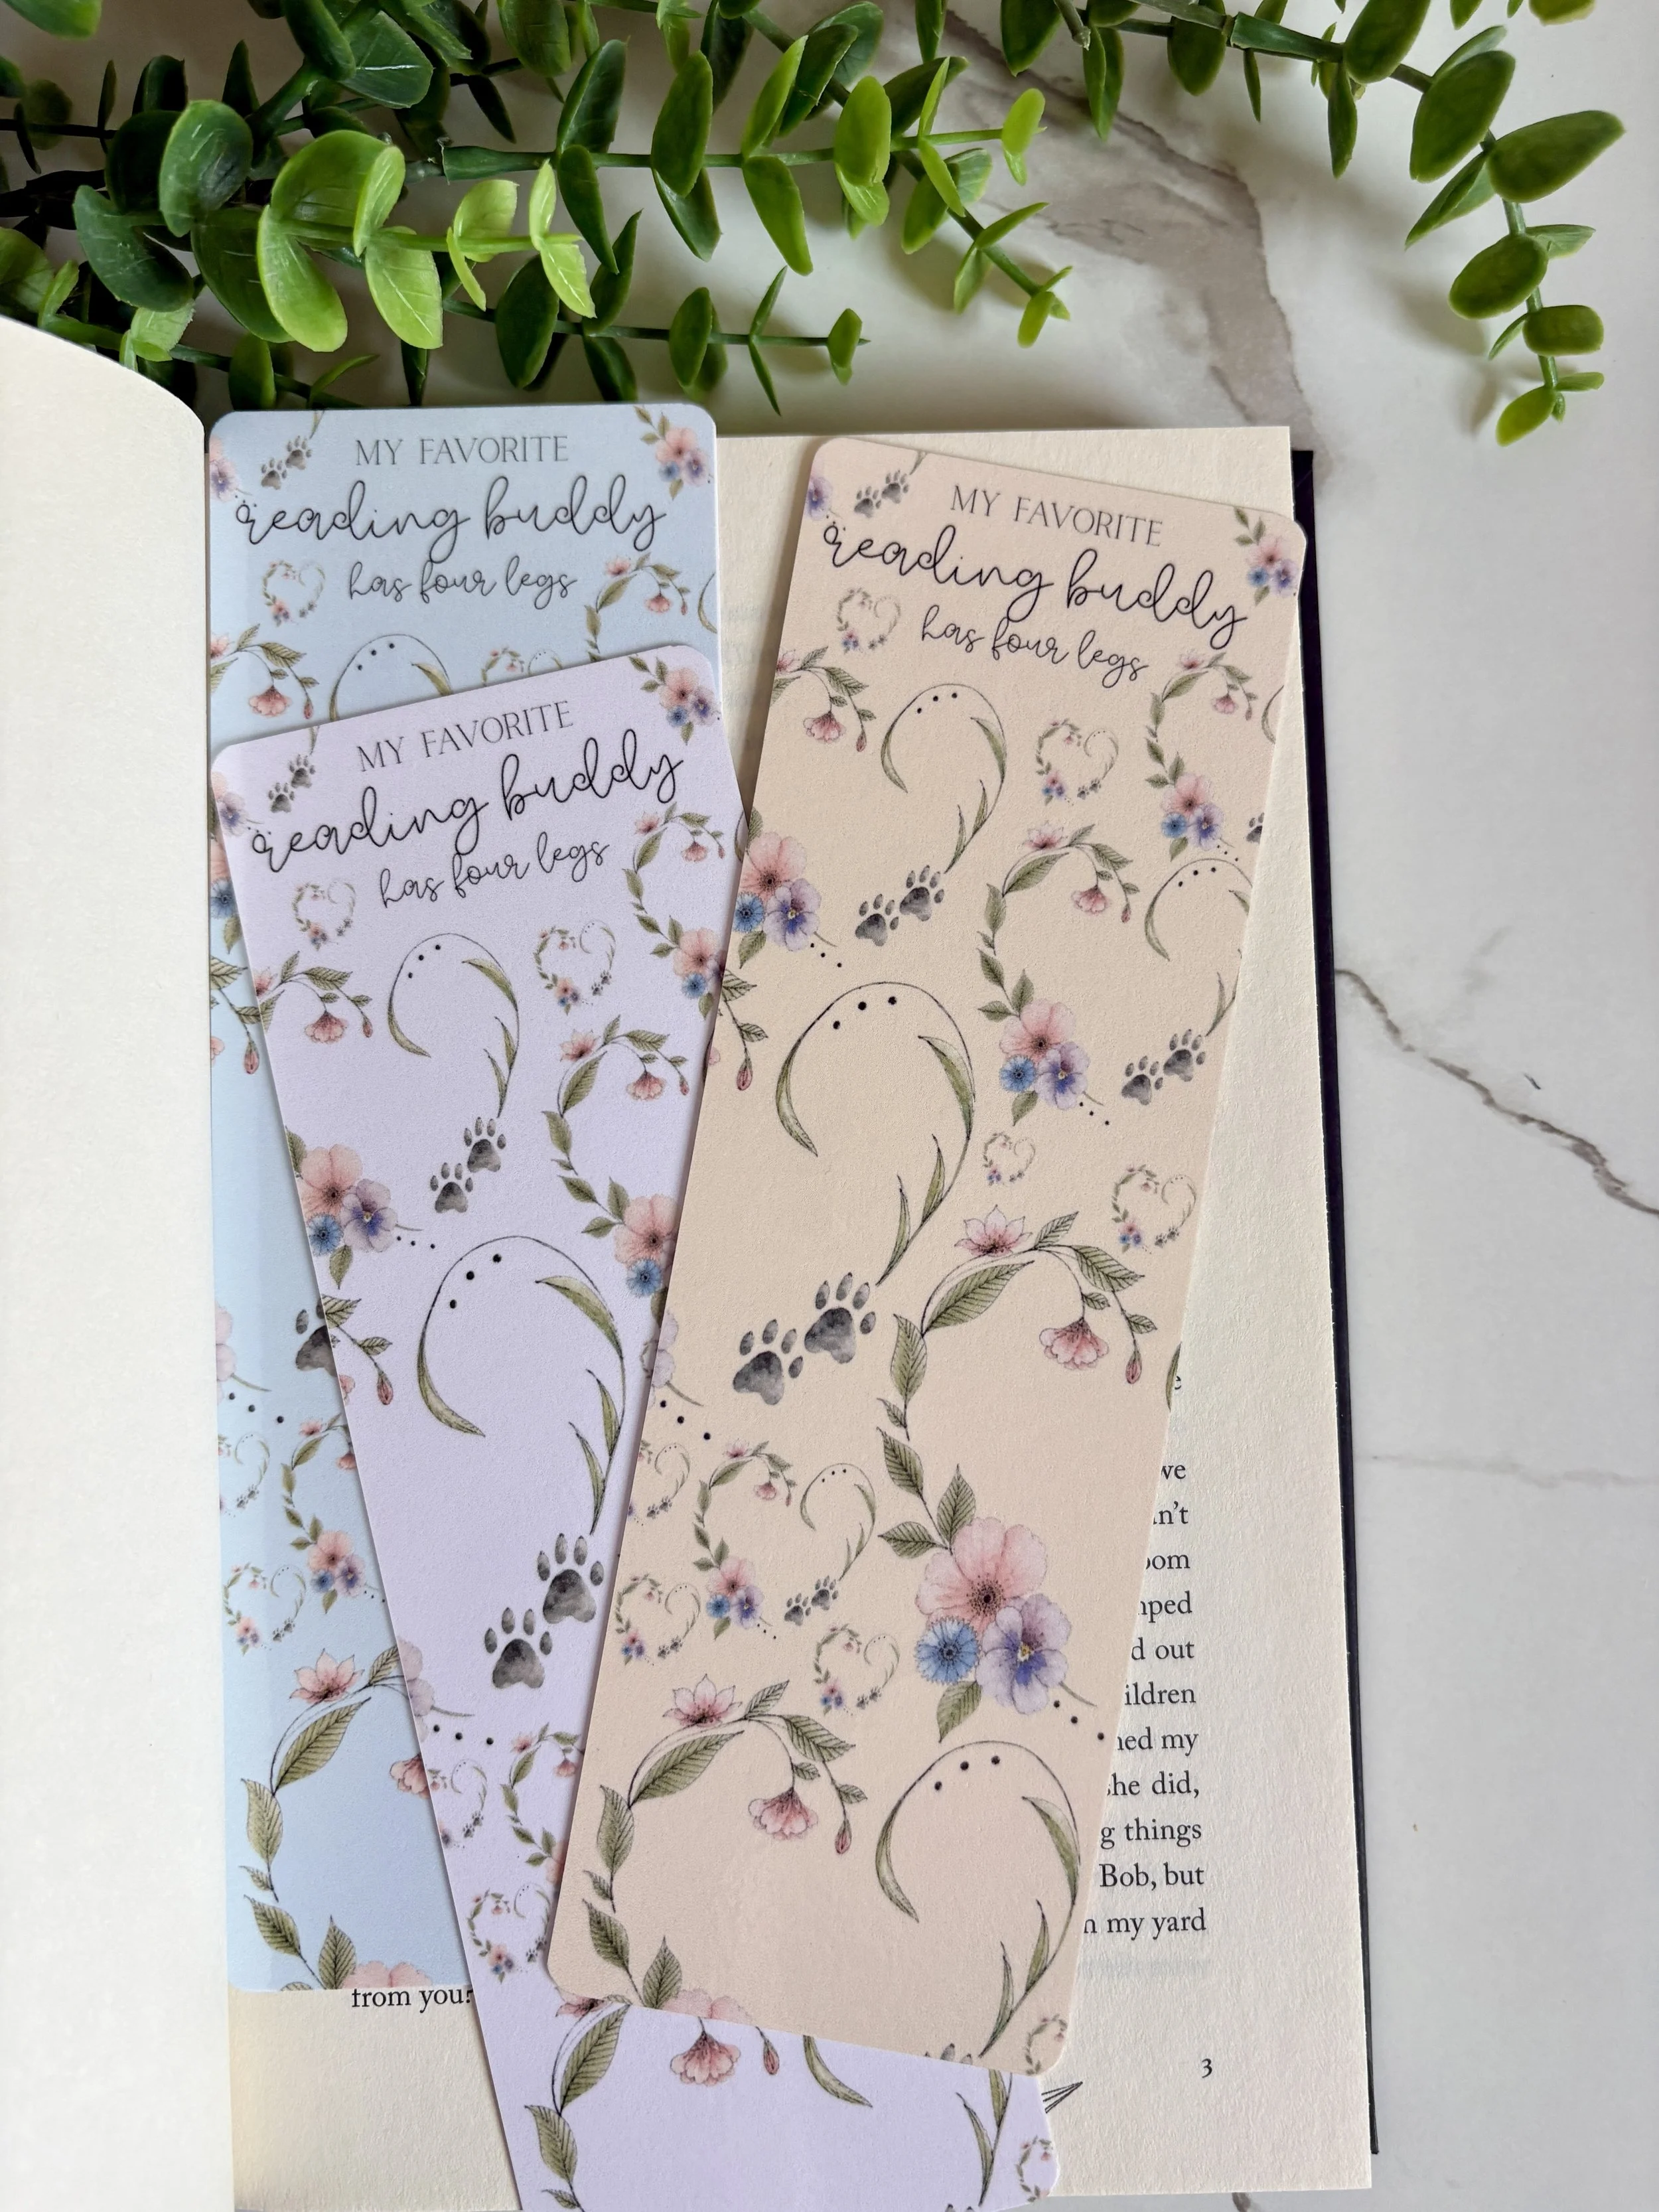 MY FAVORITE
reading buddy
has four legs
MY FAVORITE
reading buddy
has four legs
MY FAVORITE
reading buddy
has four legs
we
out
my
she did,
things
Bob, but
my yard
from you?
3